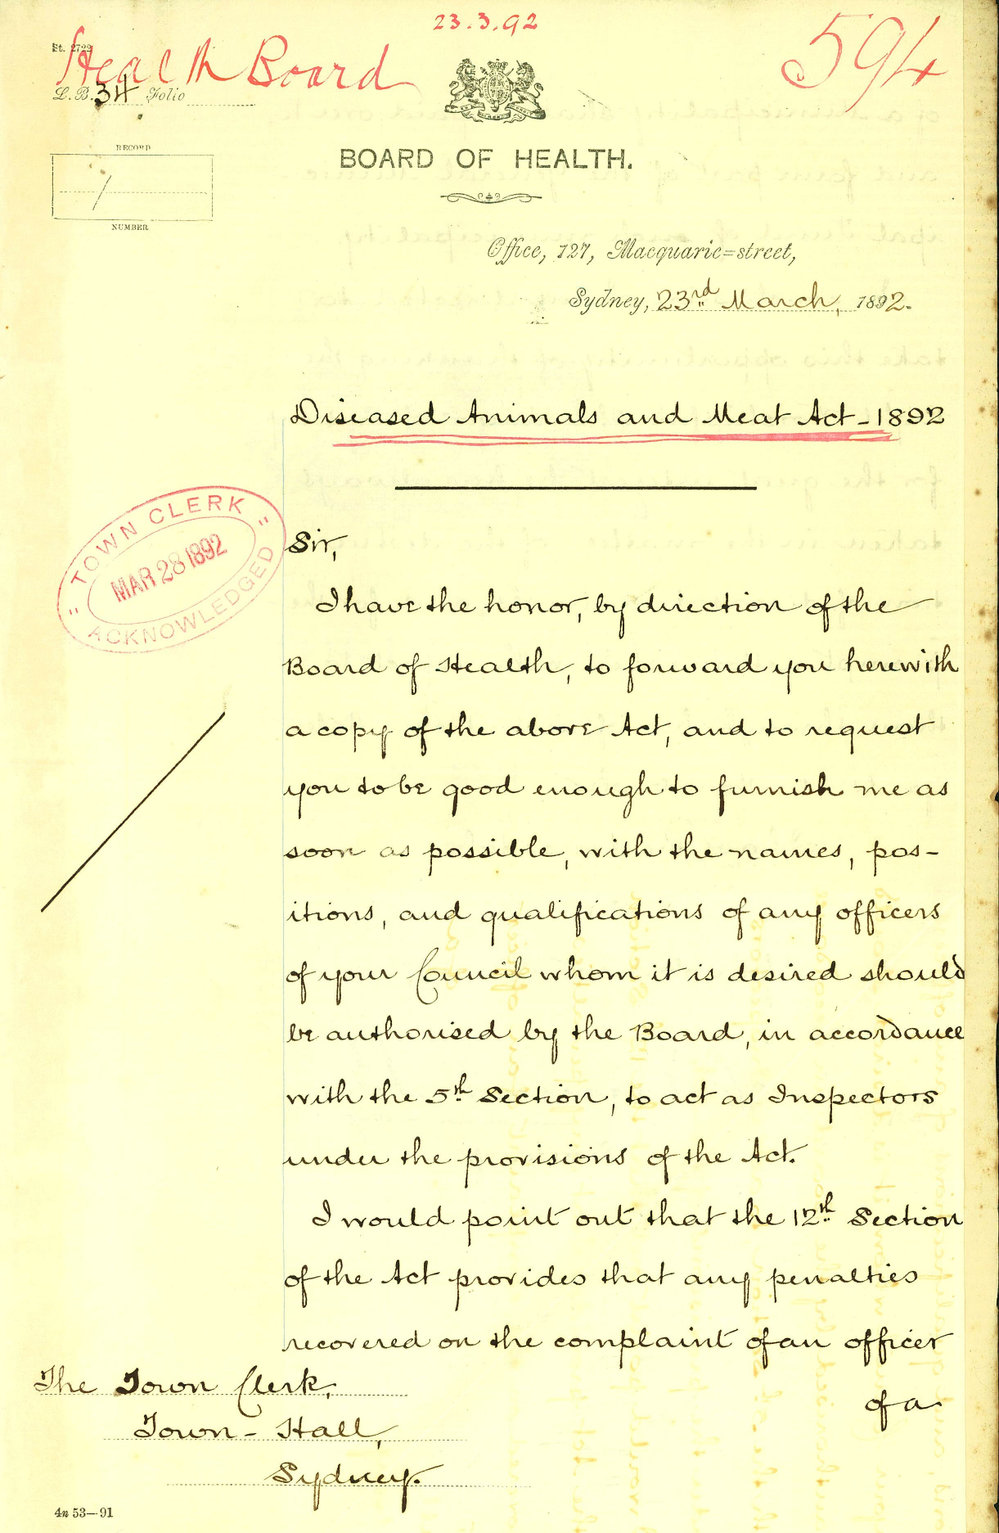 23.3.92
594
St. 2729
Health Board
L. B. 34 Folio
RECORD
1
NUMBER
BOARD OF HEALTH.
Office, 127, Macquarie=street,
Sydney, 23rd March, 1892.
Diseased Animals and Meat Act - 1892
"TOWN CLERK"
MAR 28 1892
ACKNOWLEDGED
Sir,
I have the honor, by direction of the
Board of Health, to forward you herewith
a copy of the above Act, and to request
you to be good enough to furnish me as
soon as possible, with the names, pos-
itions, and qualifications of any officers
of your Council whom it is desired should
be authorised by the Board, in accordance
with the 5th Section, to act as Inspectors
under the provisions of the Act.
I would point out that the 12th Section
of the Act provides that any penalties
recovered on the complaint of an officer
of a
The Town Clerk,
Town - Hall,
Sydney.
4n 53—91